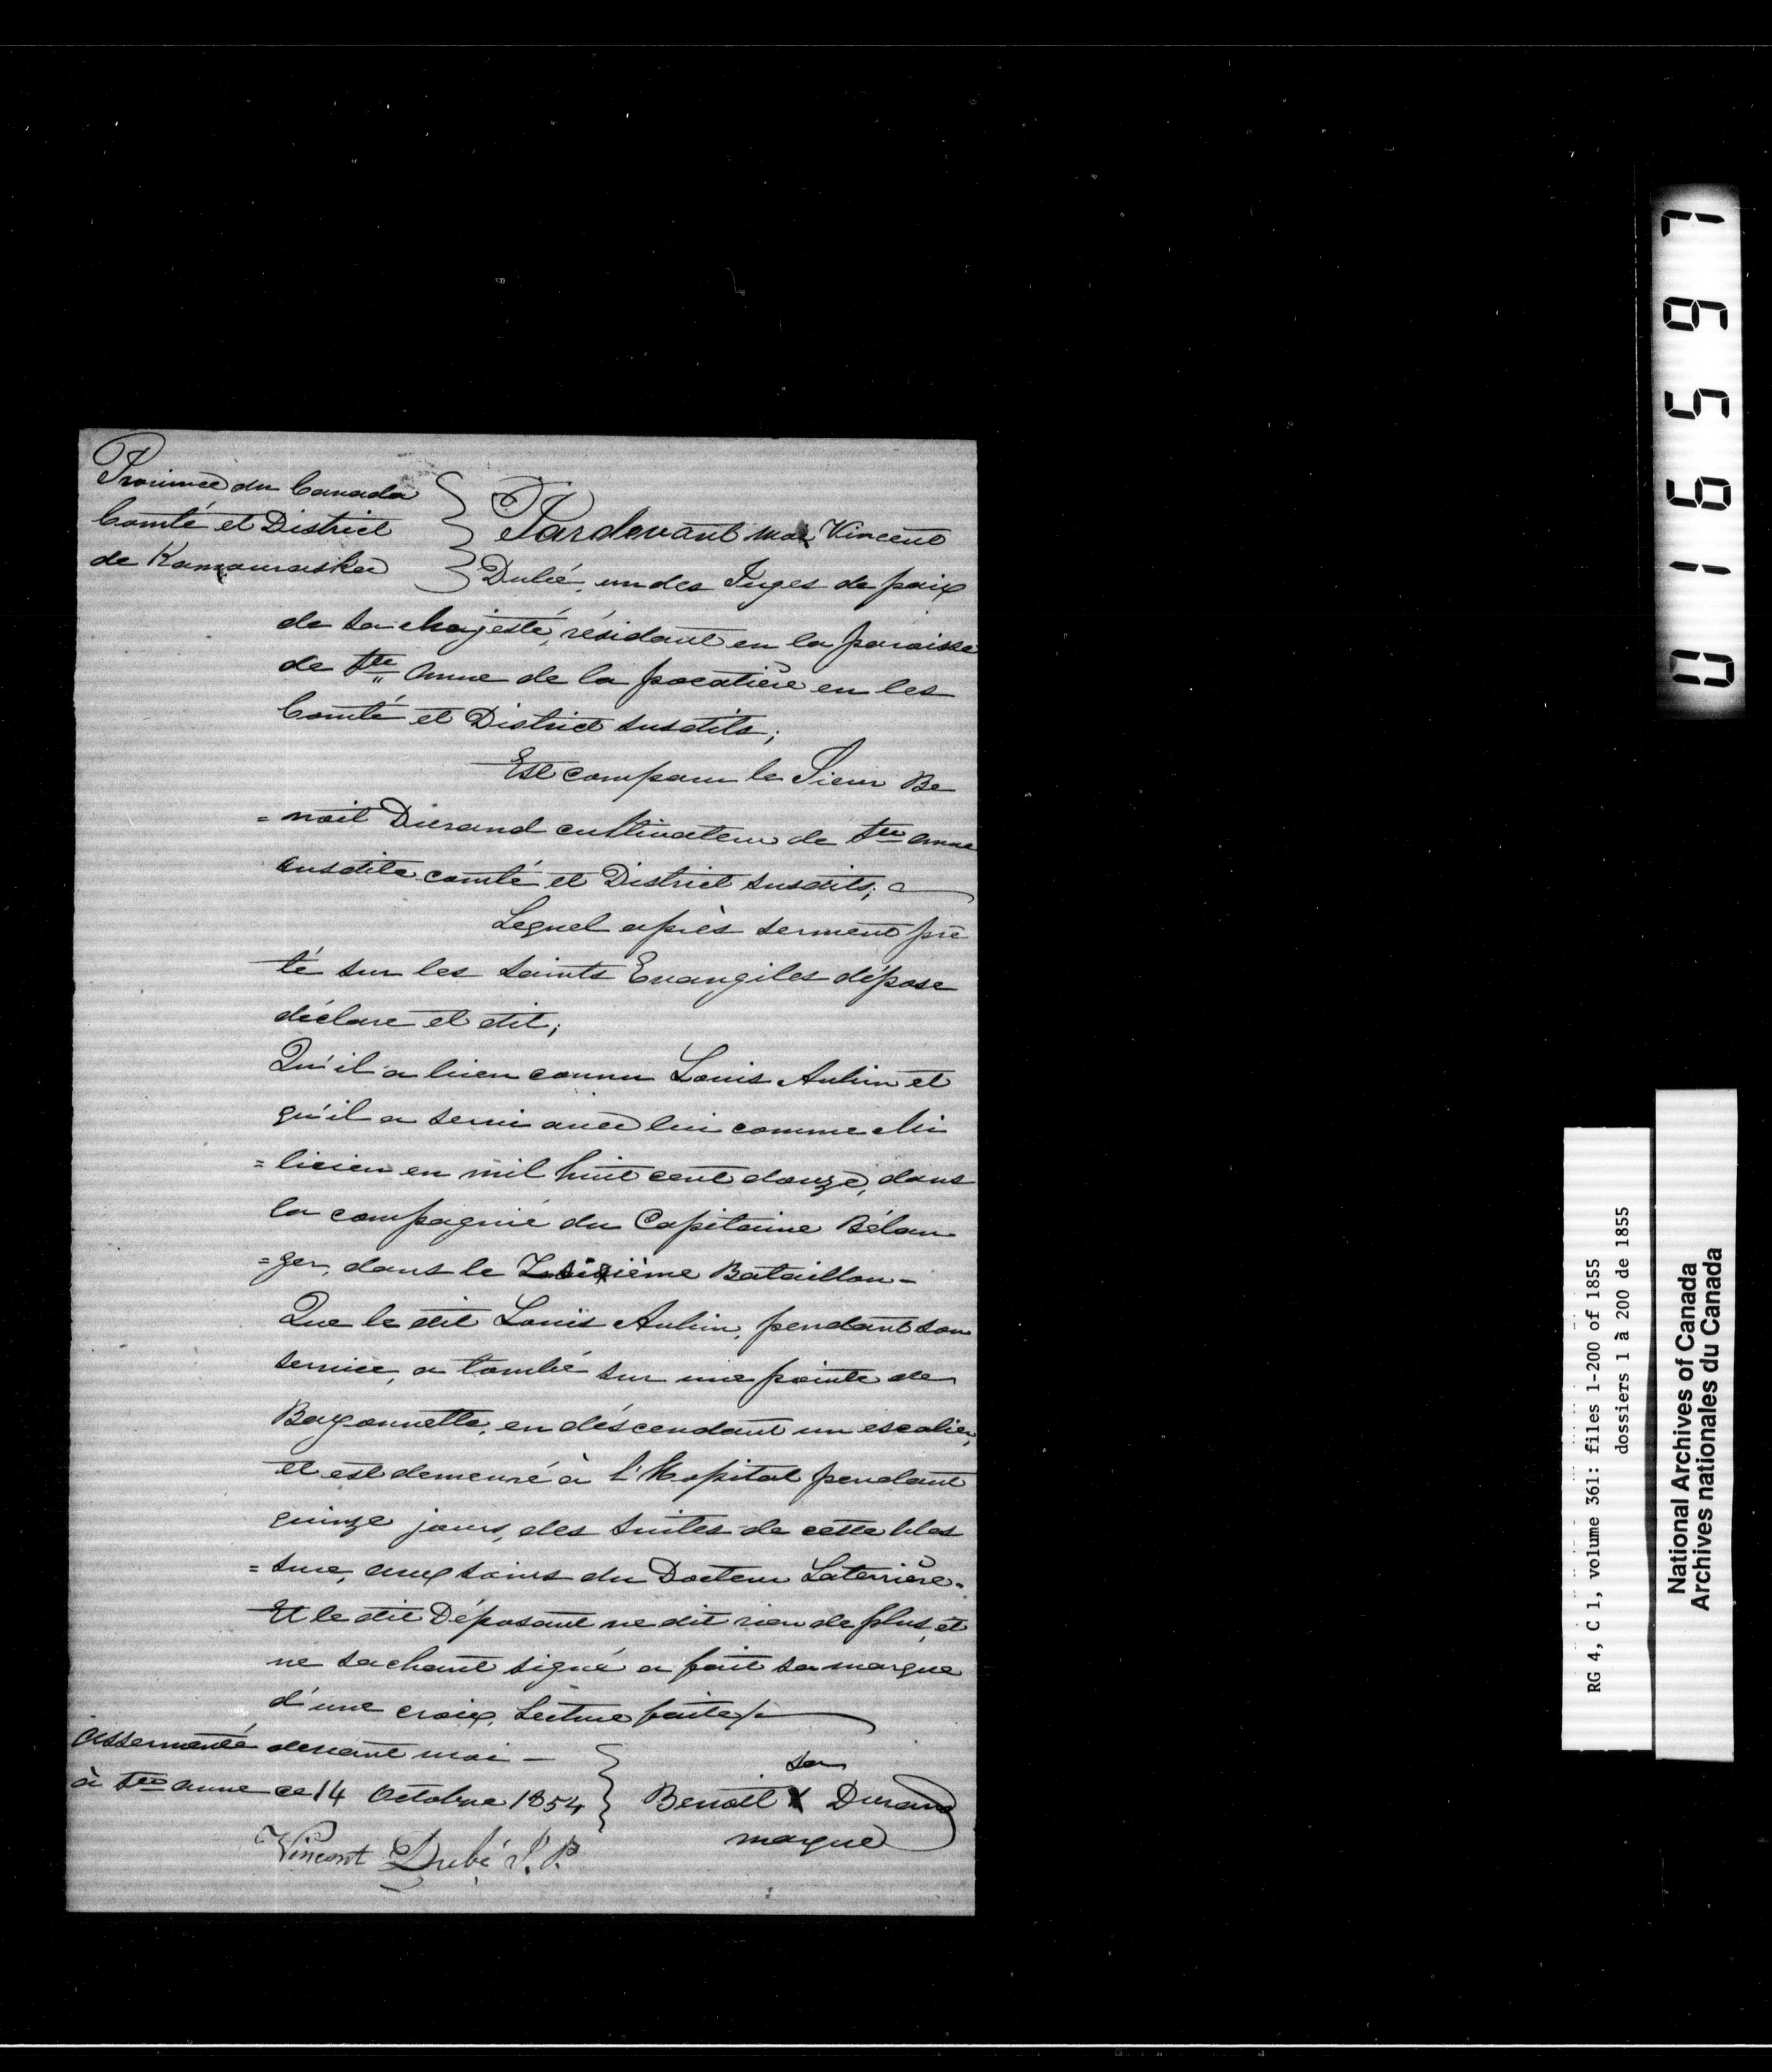 Province du Canada
Comté et District
de Kamouraska
Pardevant moi Vincent
Dubé, un des Juges de paix
de sa Majesté, résidant en la paroisse
de Ste Anne de la pocatière en les
Comté et District susdits;
Est comparu le Sieur Be
= noit Durand cultivateur de Ste anne
susdite comté et District susdits;
Lequel après serment prê
té sur les saints Evangiles dépose
déclare et dit;
Qu'il a bien connu Louis Aubin et
qu'il a servi avec lui comme Mi
= licien en mil huit cent douze, dans
la compagnie du Capitaine Bélan
= ger, dans le Bataillon -
Que le dit Louis Aubin, pendant son
service, a tombé sur une pointe de
Bayonnette, en déscendant un escalier,
et est demeuré à l'Hopital pendant
quinze jours, des suites de cette bles
= sure, aux soins du Docteur Laterrière.
Et le dit Déposant ne dit rien de plus, et
ne sachant signé a fait sa marque
d'une croix, Lecture faite/.
Assermenté devant moi -
à Ste anne ce 14 Octobre 1854
sa
Benoit X Durand
marque
Vincent Dubé J. P.
016597
RG 4, C 1, volume 361: files 1-200 of 1855
dossiers 1 à 200 de 1855
National Archives of Canada
Archives nationales du Canada